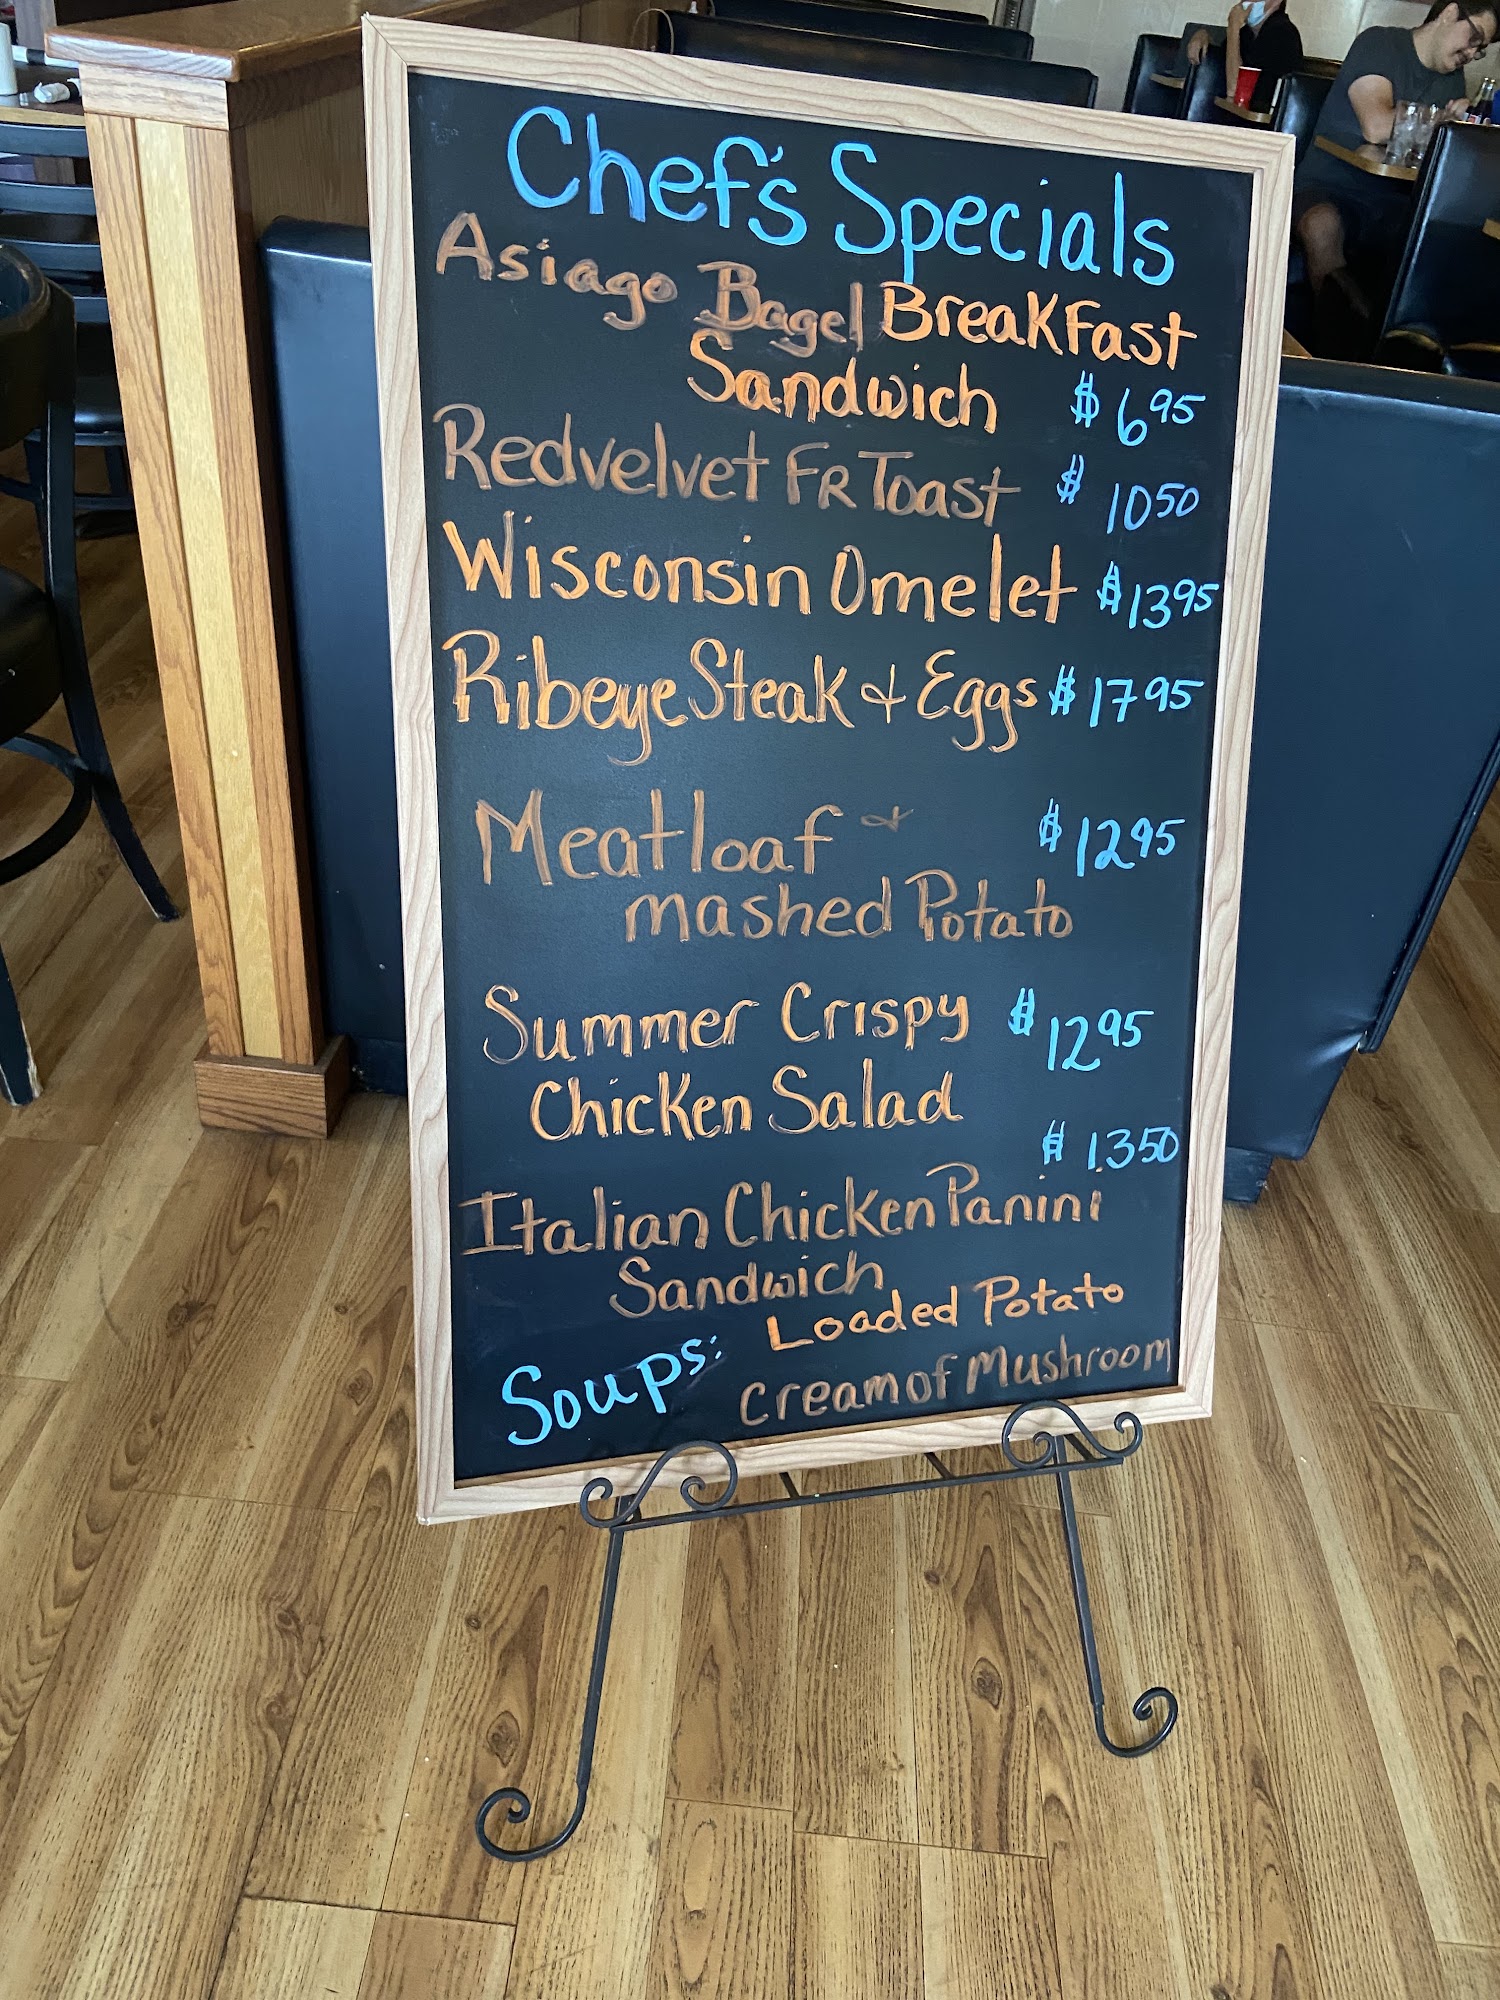 Chef's Specials
Asiago Bagel Breakfast
Sandwich $6.95
Redvelvet FR Toast $10.50
Wisconsin Omelet $13.95
Ribeye Steak & Eggs $17.95
Meatloaf & $12.95
mashed Potato
Summer Crispy $12.95
Chicken Salad
$13.50
Italian Chicken Panini
Sandwich
Soups: Loaded Potato
cream of Mushroom